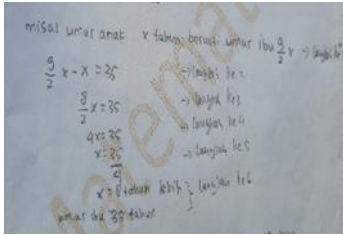 misal umur anak x tahun berarti umur ibu 9/2 x → langkah
9/2 x - x = 35 → langkah ke 2
8/2 x = 35 → langkah ke 3
4x = 35 → langkah ke 4
x = 35/4 → langkah ke 5
x = 8 tahun lebih } langkah ke 6
umur ibu 35 tahun
Matemat